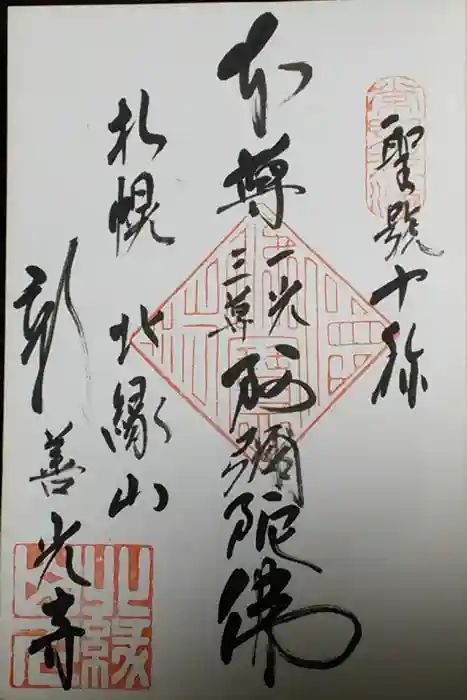 聖號十称
本尊
一光
三尊
阿彌陀佛
札幌 北縁山
新善光寺